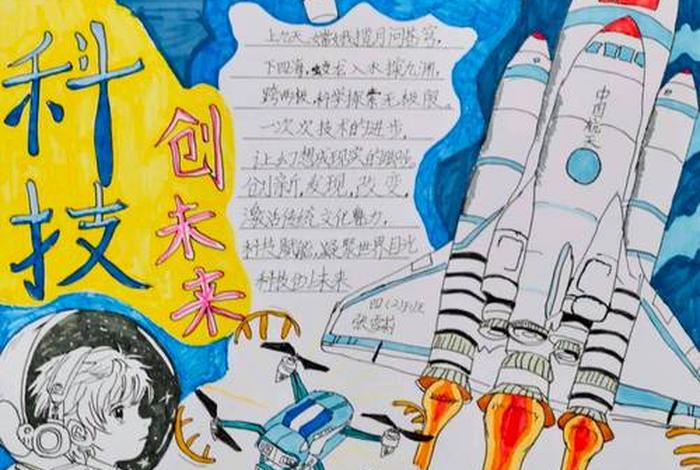 科技
创未来
上九天,嫦娥揽月问苍穹,
下四海,蛟龙入水探九洲,
跨两极,科学探索无极限。
一次次技术的进步,
让幻想成现实的
创新,发现,改变,
激活传统文化魅力,
科技赋能,凝聚世界目光
科技创未来
四(2)班
张
中国航天